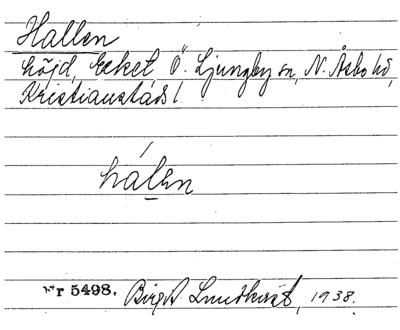 Hallen
höjd, Eket, Ö. Ljungby sn, N. Åsbo hd,
Kristianstads l
hálen
Nr 5498. Birgit Lundkvist, 1938.